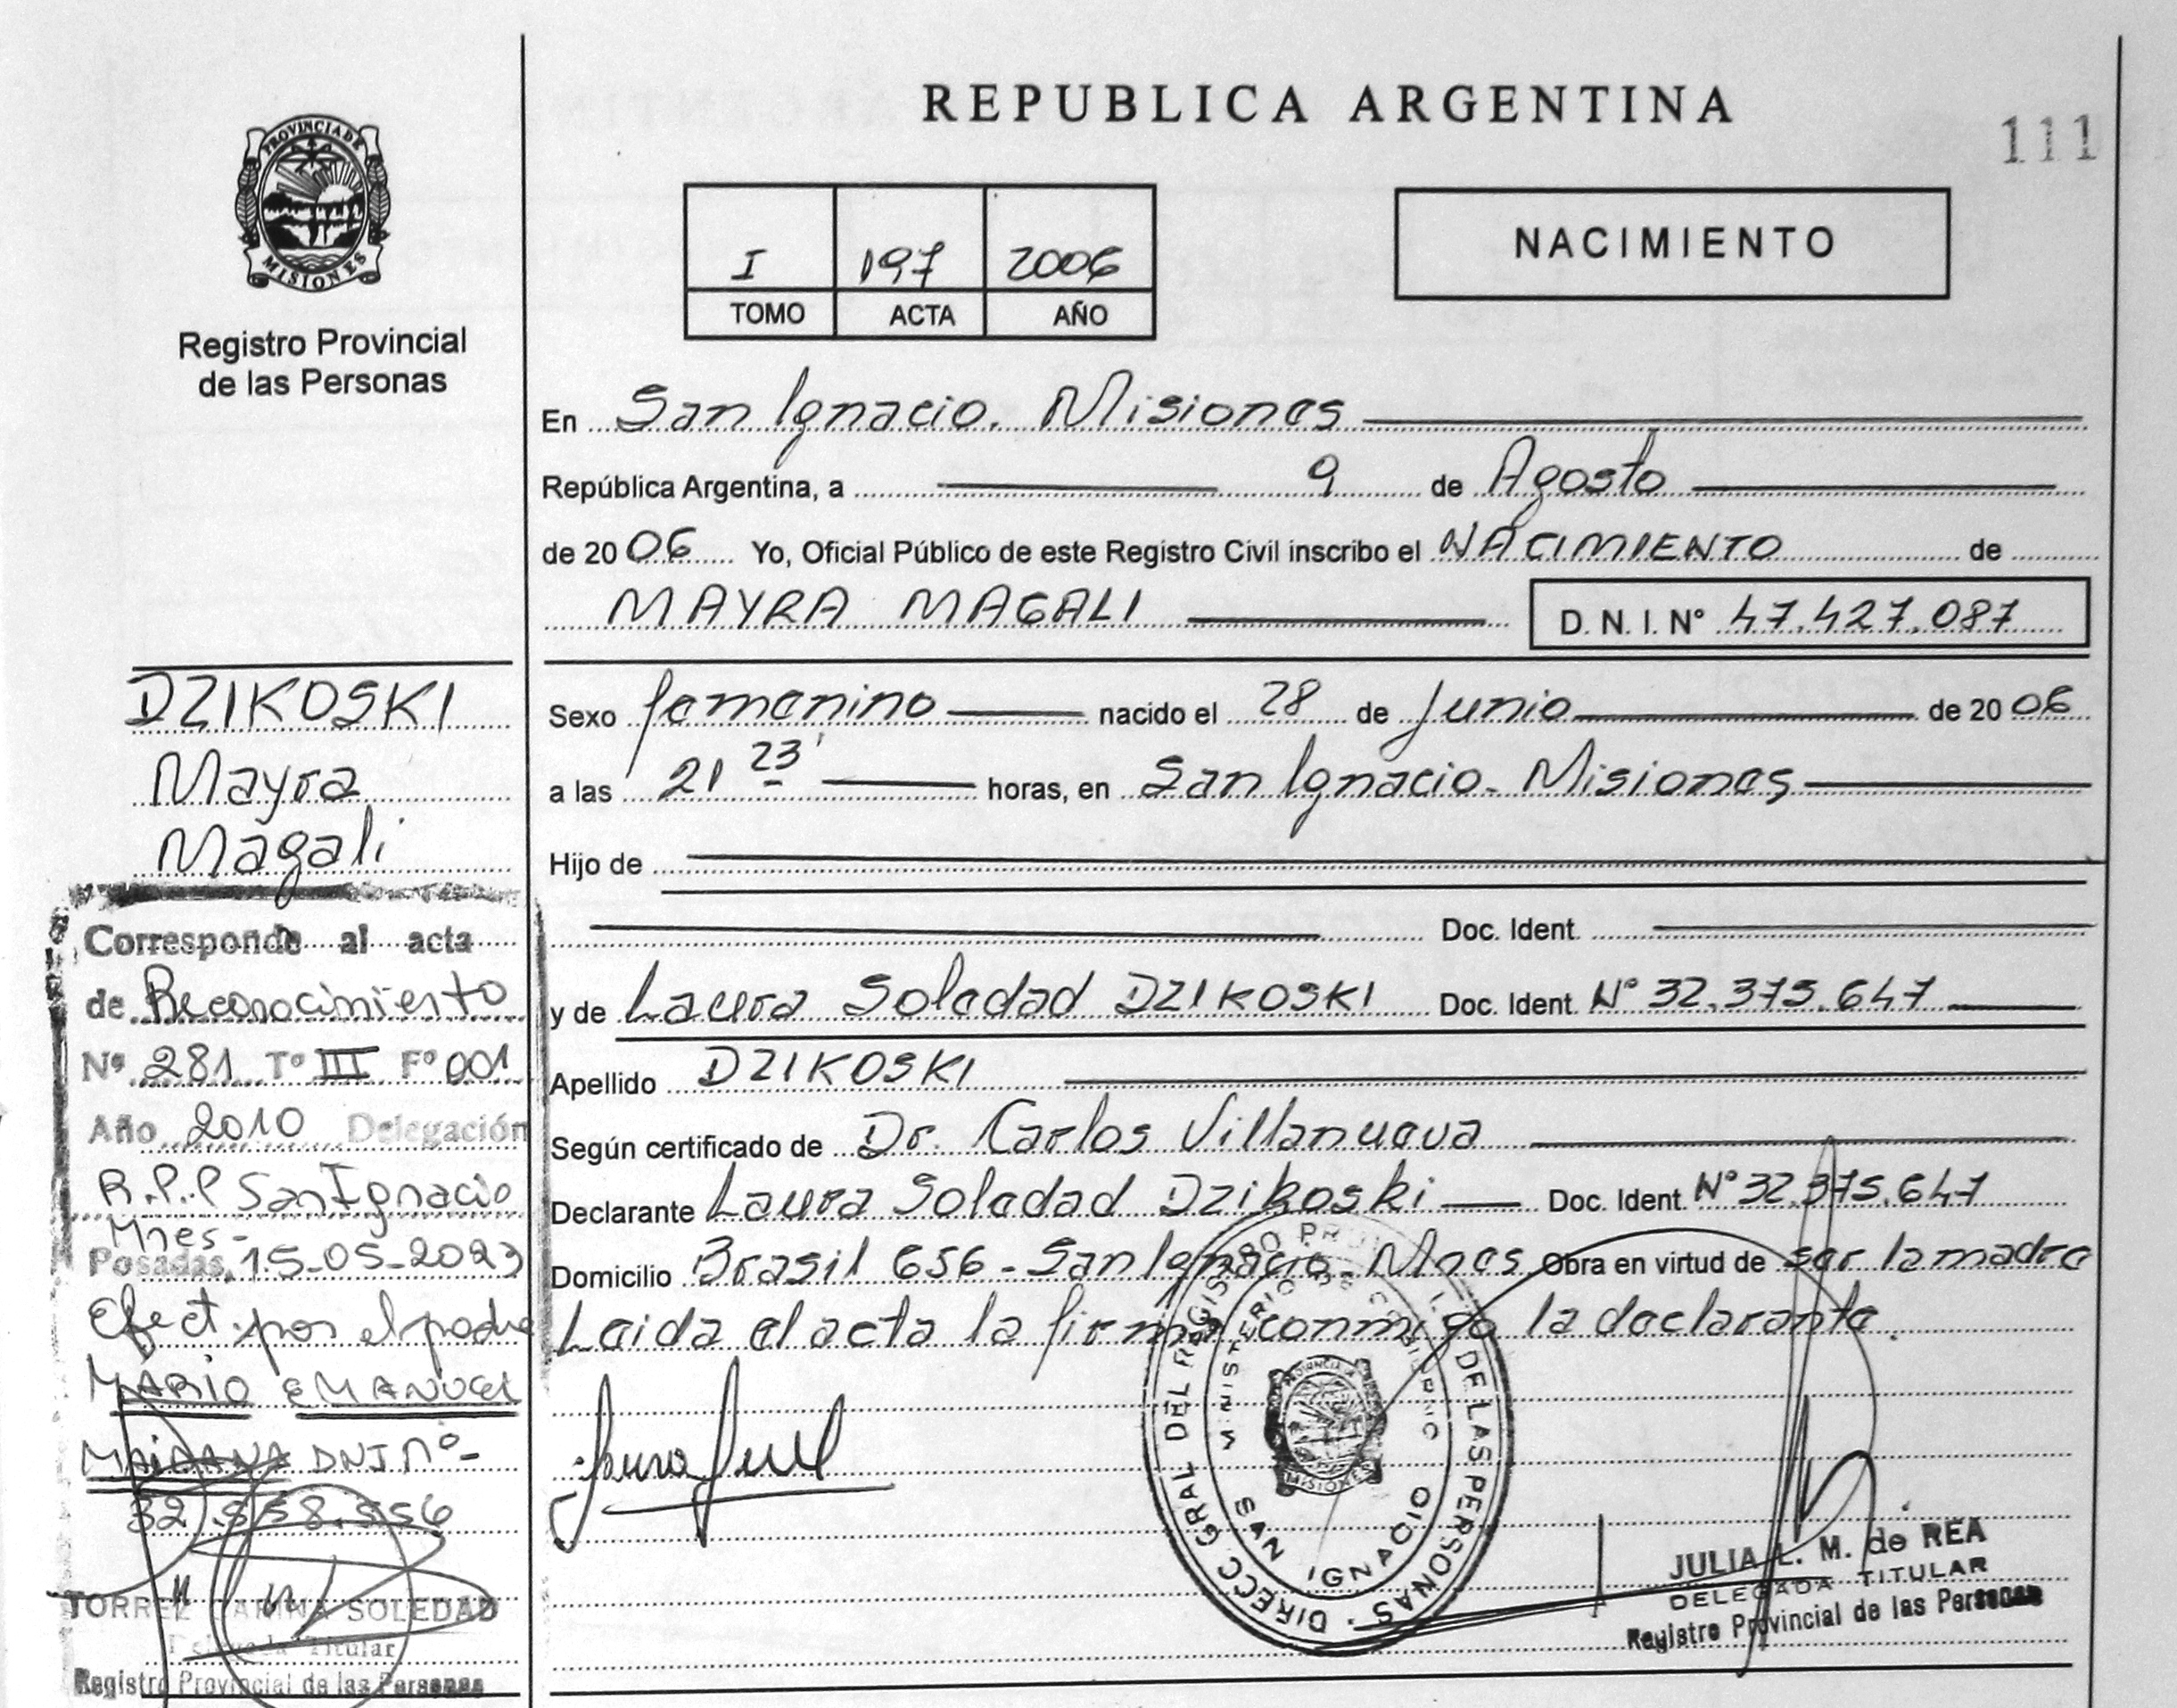 REPUBLICA ARGENTINA
111
PROVINCIA DE
MISIONES
Registro Provincial
de las Personas
I 197 2006
TOMO ACTA AÑO
NACIMIENTO
En San Ignacio. Misiones
República Argentina, a 9 de Agosto
de 2006 Yo, Oficial Público de este Registro Civil inscribo el NACIMIENTO de
MAYRA MAGALI D. N. I. Nº 47.427.087
Sexo femenino nacido el 28 de Junio de 2006
a las 21 23' horas, en San Ignacio - Misiones
Hijo de
Doc. Ident.
y de Laura Soledad DZIKOSKI Doc. Ident. Nº 32.375.647
Apellido DZIKOSKI
Según certificado de Dr. Carlos Villanueva
Declarante Laura Soledad Dzikoski Doc. Ident. Nº 32.375.647
Domicilio Brasil 656 - San Ignacio - Mnes Obra en virtud de ser la madre
Leida el acta la firma conmigo la declarante.
DZIKOSKI
Mayra
Magali
Corresponde al acta
de Reconocimiento
Nº 281 Tº III Fº 001
Año 2010 Delegación
R.P.P San Ignacio
Mnes -
Posadas, 15-05-2023
Efect. por el padre
MARIO EMANUEL
MAIDANA DNI Nº-
32.558.556
TORREZ KARINA SOLEDAD
Delegada Titular
Registro Provincial de las Personas
DIRECC GRAL DEL REGISTRO PROV. DE LAS PERSONAS
MINISTERIO DE GOBIERNO
PROVINCIA DE
MISIONES
SAN IGNACIO
JULIA L. M. de REA
DELEGADA TITULAR
Registro Provincial de las Personas